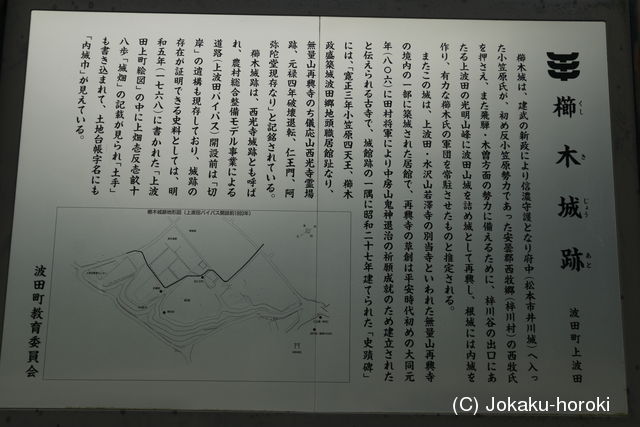 櫛木城跡
くし き じょう あと
波田町上波田
櫛木城は、建武の新政により信濃守護となり府中(松本市井川城)へ入っ
た小笠原氏が、初め反小笠原勢力であった安曇郡西牧郷(梓川村)の西牧氏
を押さえ、また飛騨・木曽方面の勢力に備えるために、梓川谷の出口にあ
たる上波田の光明山峰に波田山城を詰め城として再興し、根城には内城を
作り、有力な櫛木氏の軍団を常駐させたものと推定される。
またこの城は、上波田・水沢山若澤寺の別当寺といわれた無量山再興寺
の境内の一部に築城された居館で、再興寺の草創は平安時代初めの大同元
年(八〇六)に田村将軍により中房山鬼神退治の祈願成就のため建立された
と伝えられる古寺で、城館跡の一隅に昭和二十七年建てられた「史蹟碑」
には、「寛正三年小笠原四天王、櫛木
政盛築城波田郷地頭職居館趾なり、
無量山再興寺のち儀応山西光寺霊場
跡、元禄四年破壊退転、仁王門、阿
弥陀堂現存なり」と記銘されている。
櫛木城跡は、西光寺城跡とも呼ば
れ、農村総合整備モデル事業による
道路(上波田バイパス)開設前は「切
岸」の遺構も現存しており、城跡の
存在が証明できる史料としては、明
和五年(一七六八)に書かれた「上波
田上町絵図」の中に上畑壱反壱畝十
八歩「城畑」の記載が見られ「土手」
も書き込まれて、土地台帳字名にも
「内城巾」が見えている。
櫛木城跡地形図(上波田バイパス開設前1992年)
波田町教育委員会
(C) Jokaku-horoki